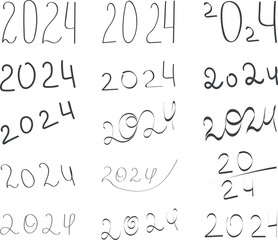 2024 2024 2024
2024 2024 2024
2024 2024 2024
2024 2024 20
24
2024 2024 2024